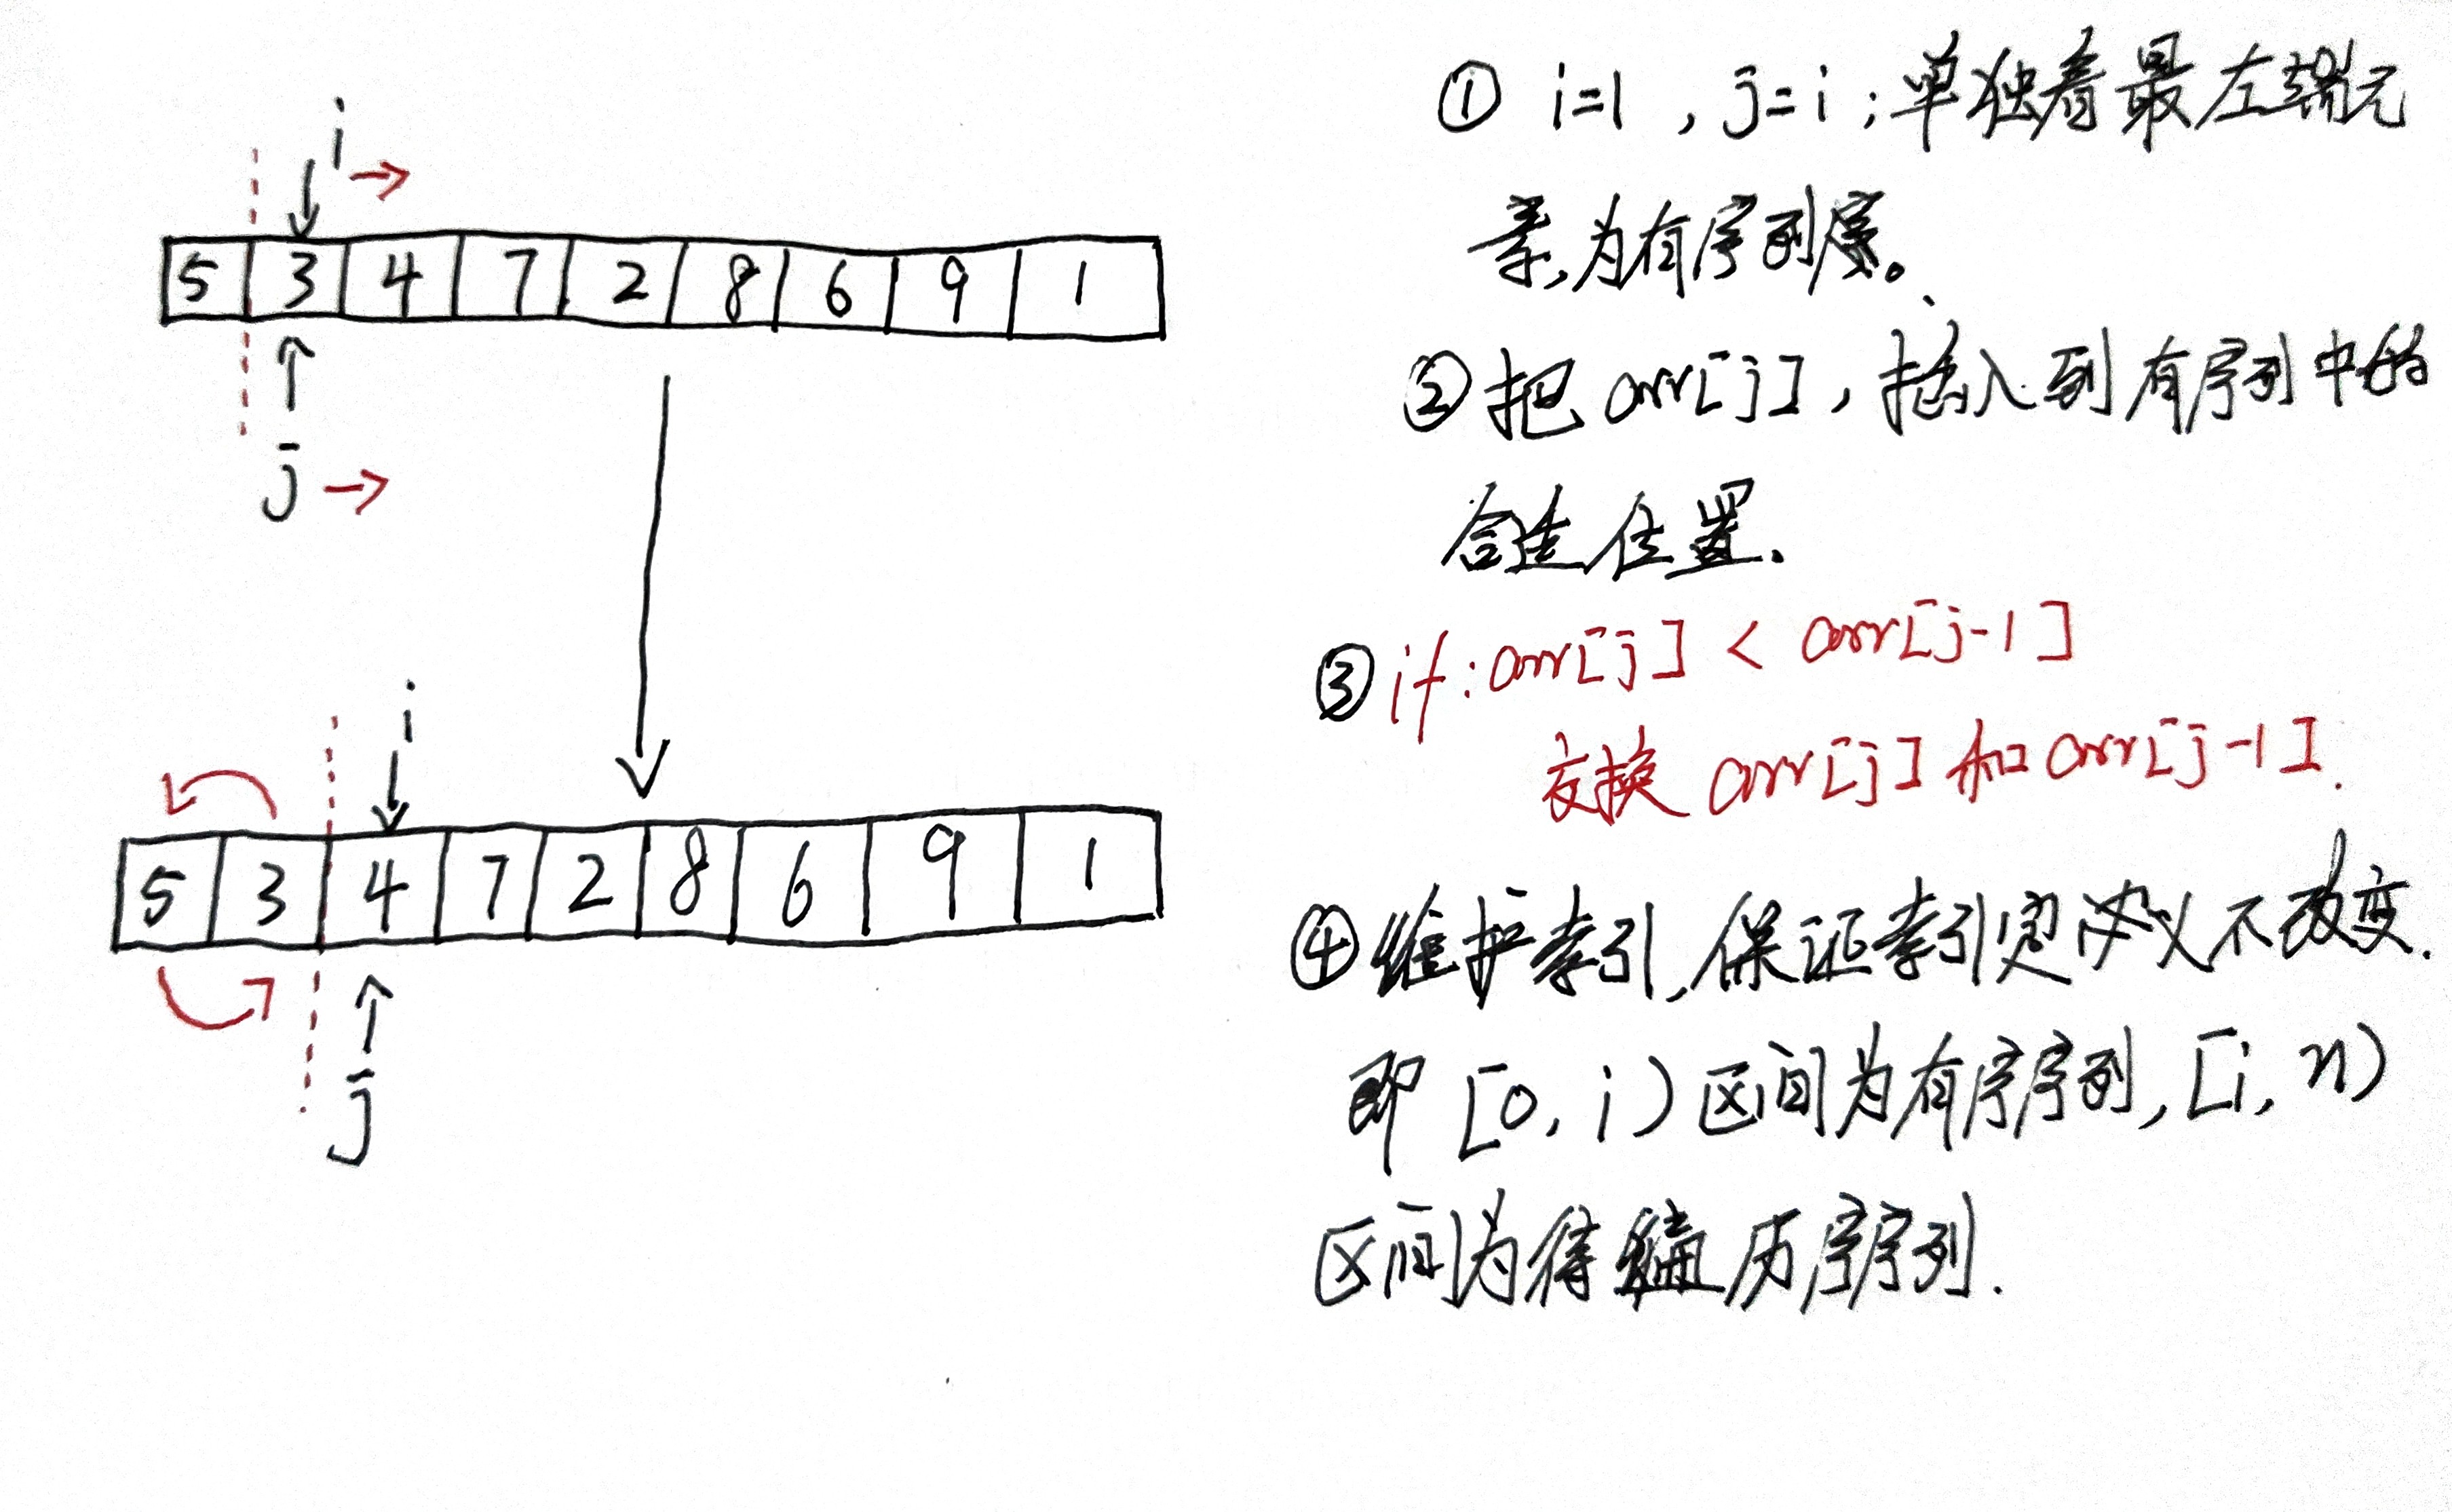 i
5 3 4 7 2 8 6 9 1
j
i
5 3 4 7 2 8 6 9 1
j
① i=1 , j=i ; 单独看最左端元
素,为有序列。
② 把 arr[j] , 插入到有序列中的
合适位置.
③ if: arr[j] < arr[j-1]
交换 arr[j] 和 arr[j-1].
④ 维护索引,保证索引定义不改变.
即 [0, i) 区间为有序序列, [i, n)
区间为待遍历序列.